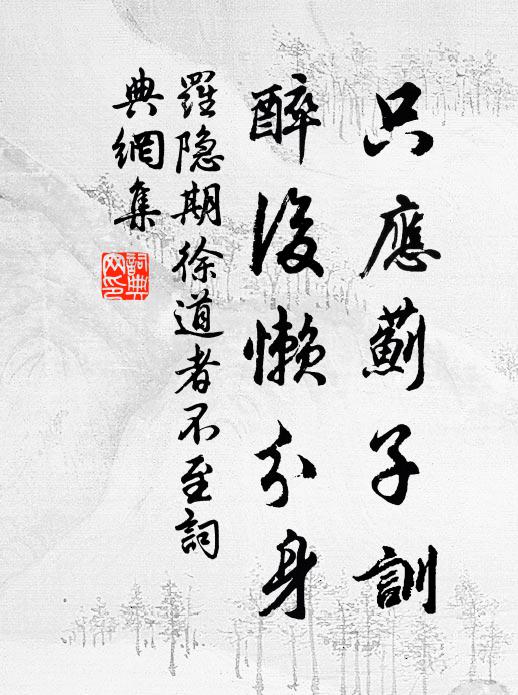 只應薊子訓
醉後懶分身
羅隐期徐道者不至詞
典網集
詞典
网印